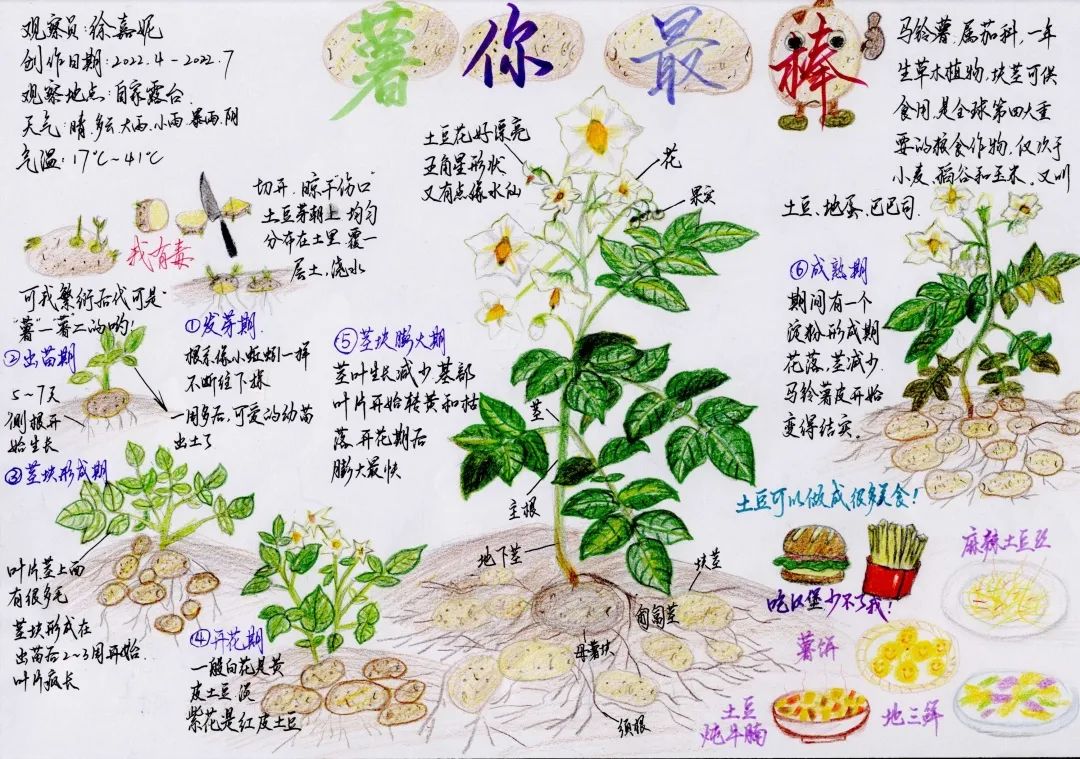 薯你最棒
观察员:徐嘉妮
创作日期:2022.4-2022.7
观察地点:自家露台
天气:晴,多云,大雨,小雨,暴雨,阴
气温:17℃~41℃
马铃薯,属茄科,一年
生草本植物,块茎可供
食用,是全球第四大重
要的粮食作物,仅次于
小麦、稻谷和玉米。又叫
土豆、地蛋、巴巴司.
切开,晾干"伤口"
土豆芽朝上 均匀
分布在土里 覆一
层土,浇水
我有毒
可我繁衍后代可是
"薯"一薯二的哟!
①发芽期
根系像小蚯蚓一样
不断往下探
一周多后,可爱的幼苗
出土了
②出苗期
5~7天
侧根开
始生长
③茎块形成期
叶片茎上面
有很多毛
茎块形成在
出苗后2~3周开始.
叶片疯长
④开花期
一般白花是黄
皮土豆
紫花是红皮土豆
⑤茎块膨大期
茎叶生长减少,基部
叶片开始转黄和枯
落,开花期后
膨大最快
土豆花好漂亮
五角星形状
又有点像水仙
花
果实
茎
主根
地下茎
块茎
匍匐茎
母薯块
须根
⑥成熟期
期间有一个
淀粉形成期
花落,茎减少.
马铃薯皮开始
变得结实。
土豆可以做成很多美食!
吃汉堡少不了我!
麻辣土豆丝
薯饼
土豆
炖牛腩
地三鲜